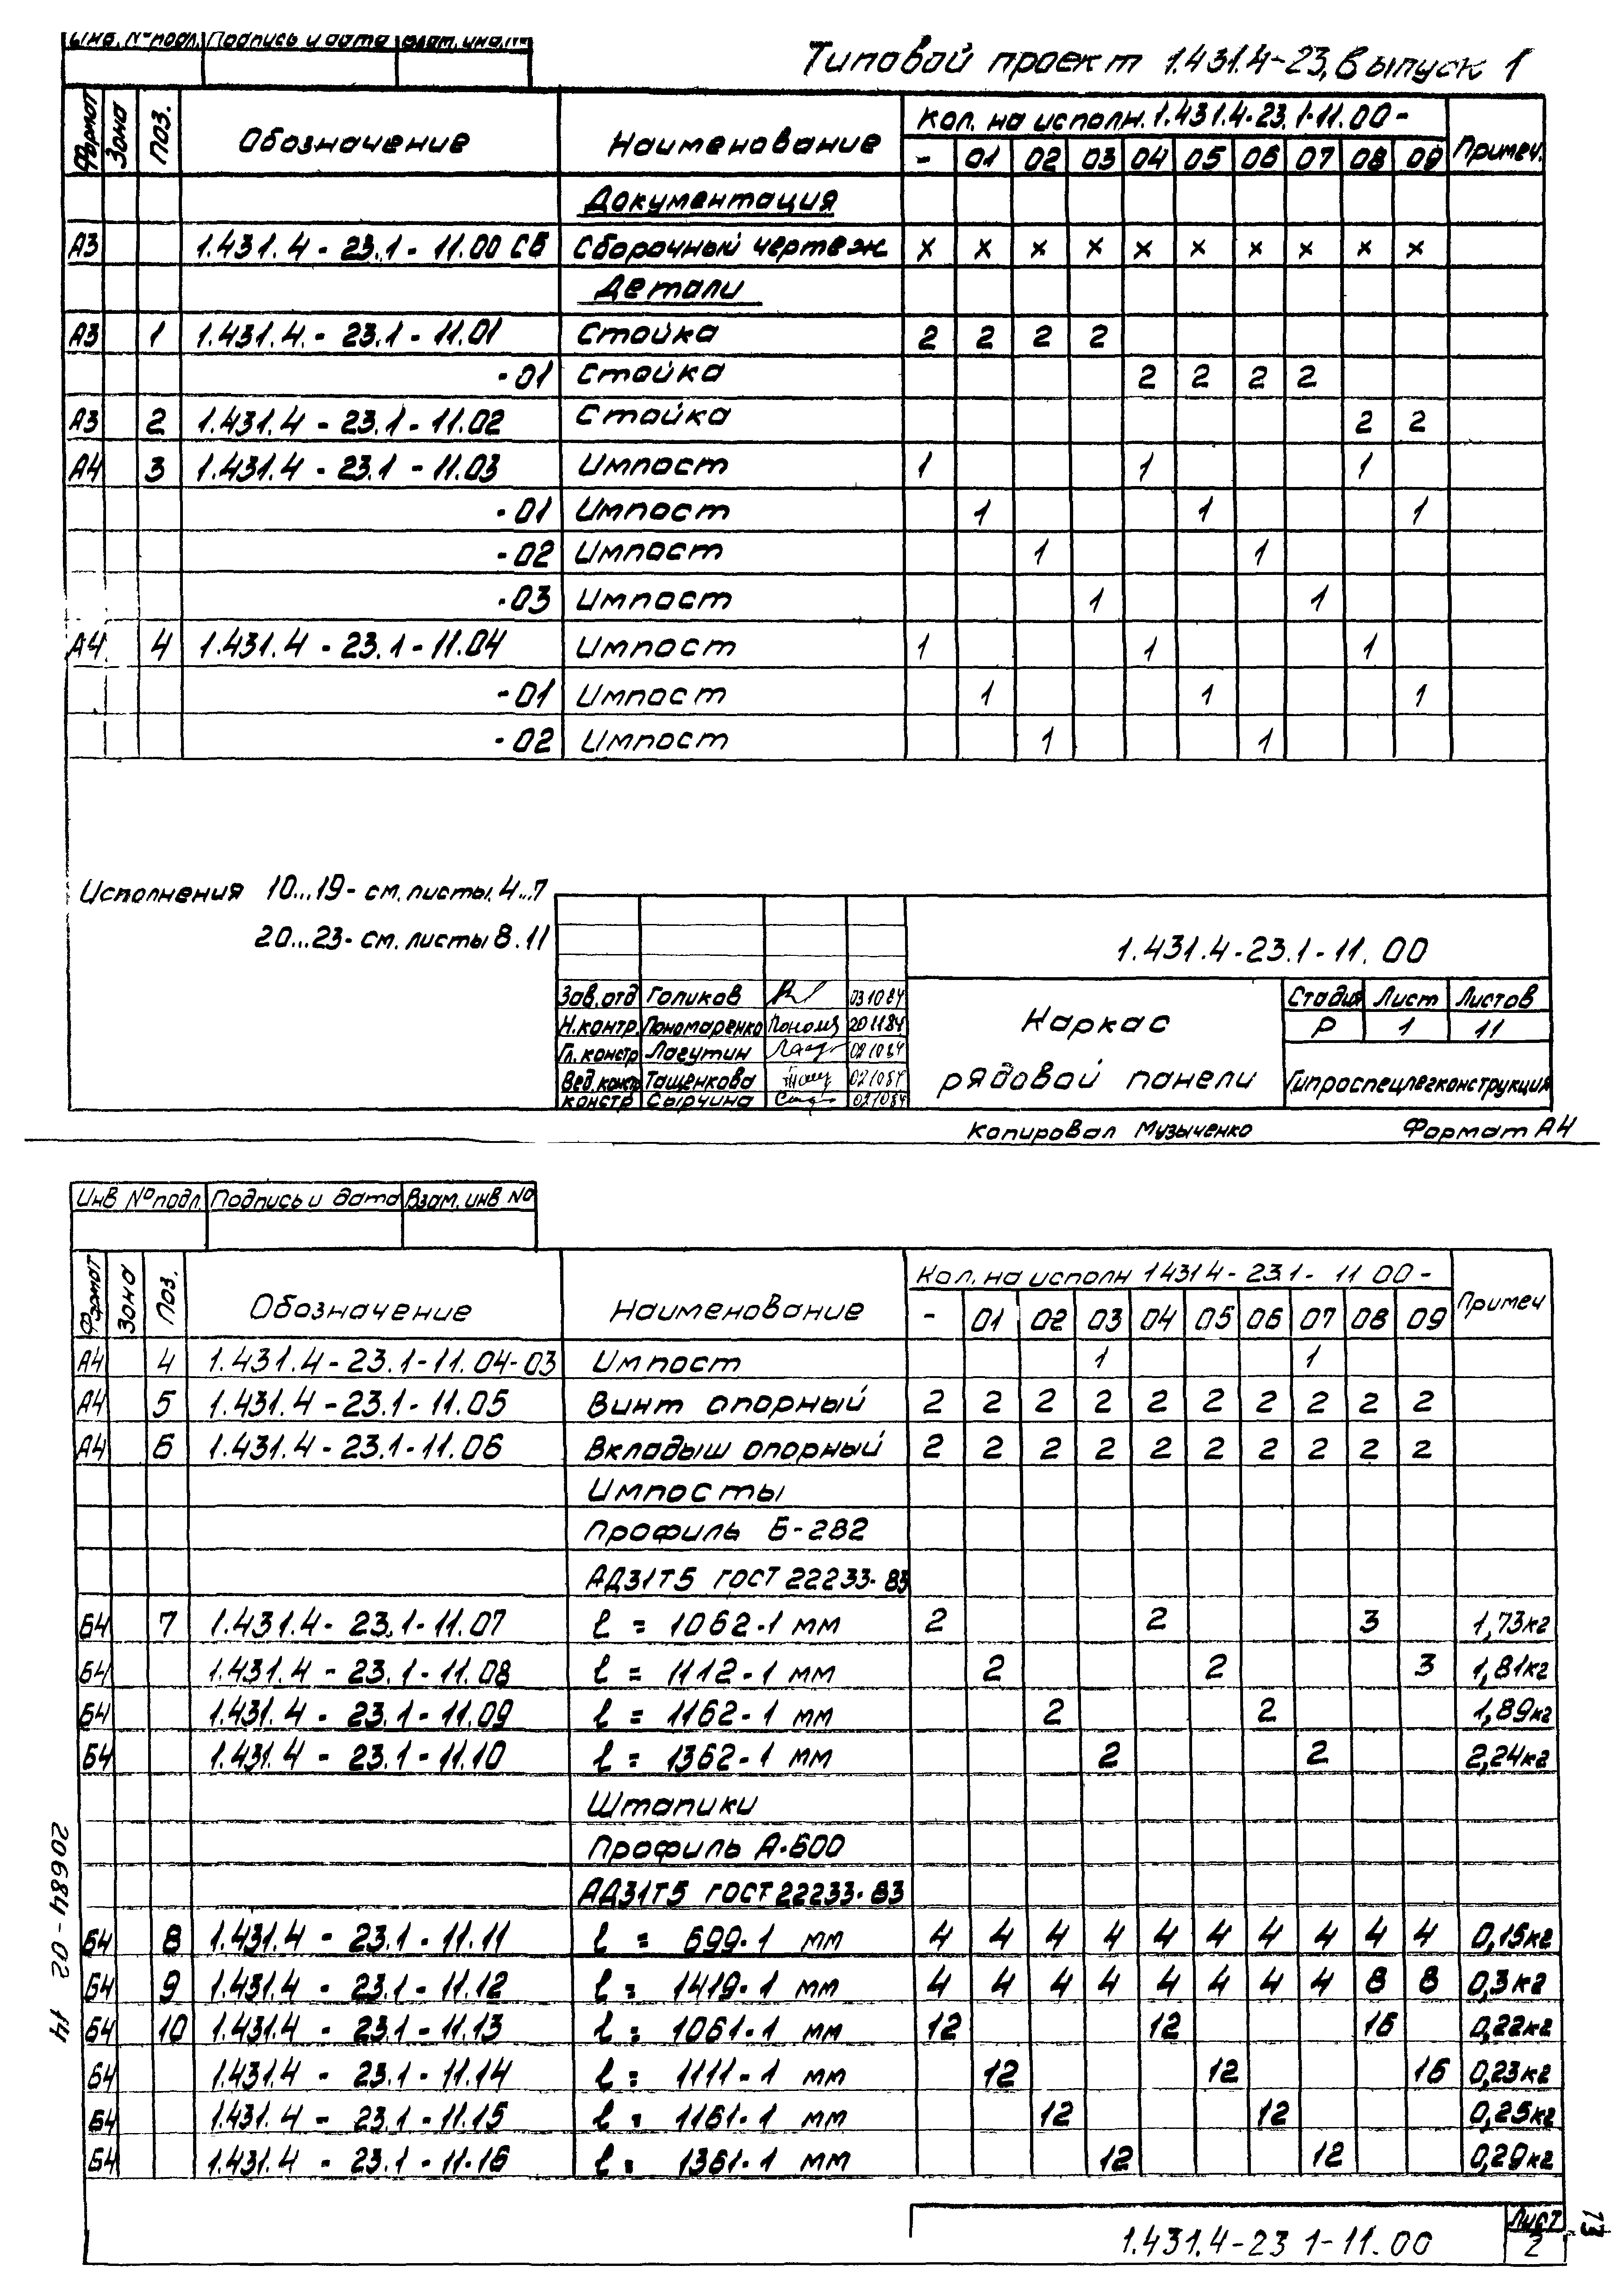 Инв. № подл. Подпись и дата Взам. инв. №
Типовой проект 1.431.4-23, Выпуск 1
Формат Зона Поз. Обозначение Наименование Кол. на исполн. 1.431.4-23.1-11.00- Примеч.
- 01 02 03 04 05 06 07 08 09
Документация
А3 1.431.4 - 23.1 - 11.00 СБ Сборочный чертеж х х х х х х х х х х
Детали
А3 1 1.431.4. - 23.1 - 11.01 Стойка 2 2 2 2
-01 Стойка 2 2 2 2
А3 2 1.431.4 - 23.1 - 11.02 Стойка 2 2
А4 3 1.431.4 - 23.1 - 11.03 Импост 1 1 1
-01 Импост 1 1 1
-02 Импост 1 1
-03 Импост 1 1
А4 4 1.431.4 - 23.1 - 11.04 Импост 1 1 1
-01 Импост 1 1 1
-02 Импост 1 1
Исполнения 10...19 - см. листы 4...7
20...23 - см. листы 8..11
1.431.4-23.1-11.00
Зав.отд Голиков 03 10 84
Н.контр. Пономаренко 20 11 84
Гл. констр Лагутин 02 10 84
Вед.констр Тащенкова 02 10 84
Констр Сырчина 02 10 84
Каркас
рядовой панели
Стадия Лист Листов
Р 1 11
Гипроспецлегконструкция
Копировал Музыченко Формат А4
Инв № подл. Подпись и дата Взам. инв №
Формат Зона Поз. Обозначение Наименование Кол. на исполн 1 431 4 - 23.1 - 11 00 - Примеч
- 01 02 03 04 05 06 07 08 09
А4 4 1.431.4 - 23.1 - 11.04-03 Импост 1 1
А4 5 1.431.4 - 23.1 - 11.05 Винт опорный 2 2 2 2 2 2 2 2 2 2
А4 6 1.431.4 - 23.1 - 11.06 Вкладыш опорный 2 2 2 2 2 2 2 2 2 2
Импосты
Профиль Б-282
АД31Т5 ГОСТ 22233-83
Б4 7 1.431.4 - 23.1 - 11.07 ℓ = 1062-1 мм 2 2 3 1,73кг
Б4 1.431.4 - 23.1 - 11.08 ℓ = 1112-1 мм 2 2 3 1,81кг
Б4 1.431.4 - 23.1 - 11.09 ℓ = 1162-1 мм 2 2 1,89кг
Б4 1.431.4 - 23.1 - 11.10 ℓ = 1362-1 мм 2 2 2,24кг
Штапики
Профиль А-600
АД31Т5 ГОСТ 22233-83
Б4 8 1.431.4 - 23.1 - 11.11 ℓ = 699-1 мм 4 4 4 4 4 4 4 4 4 4 0,15кг
Б4 9 1.431.4 - 23.1 - 11.12 ℓ = 1419-1 мм 4 4 4 4 4 4 4 4 8 8 0,3кг
Б4 10 1.431.4 - 23.1 - 11.13 ℓ = 1061-1 мм 12 12 16 0,22кг
Б4 1.431.4 - 23.1 - 11.14 ℓ = 1111-1 мм 12 12 16 0,23кг
Б4 1.431.4 - 23.1 - 11.15 ℓ = 1161-1 мм 12 12 0,25кг
Б4 1.431.4 - 23.1 - 11.16 ℓ = 1361-1 мм 12 12 0,29кг
20684-02 14
1.431.4-23 1-11.00
Лист
2
13